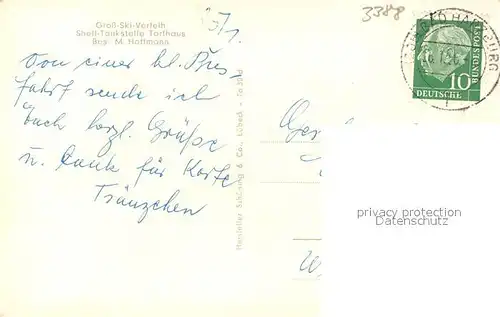 Groß-Ski-Verleih
Shell-Tankstelle Torfhaus
Bes. M. Hoffmann
5/1.
3388
Von einer kl. 
fahrt sende ich
Euch herzl. Grüße
u. Dank für Karte
Fränzchen
Hersteller Schöning & Co., Lübeck
DEUTSCHE
BUNDESPOST
10
HARZBURG
privacy protection
Datenschutz